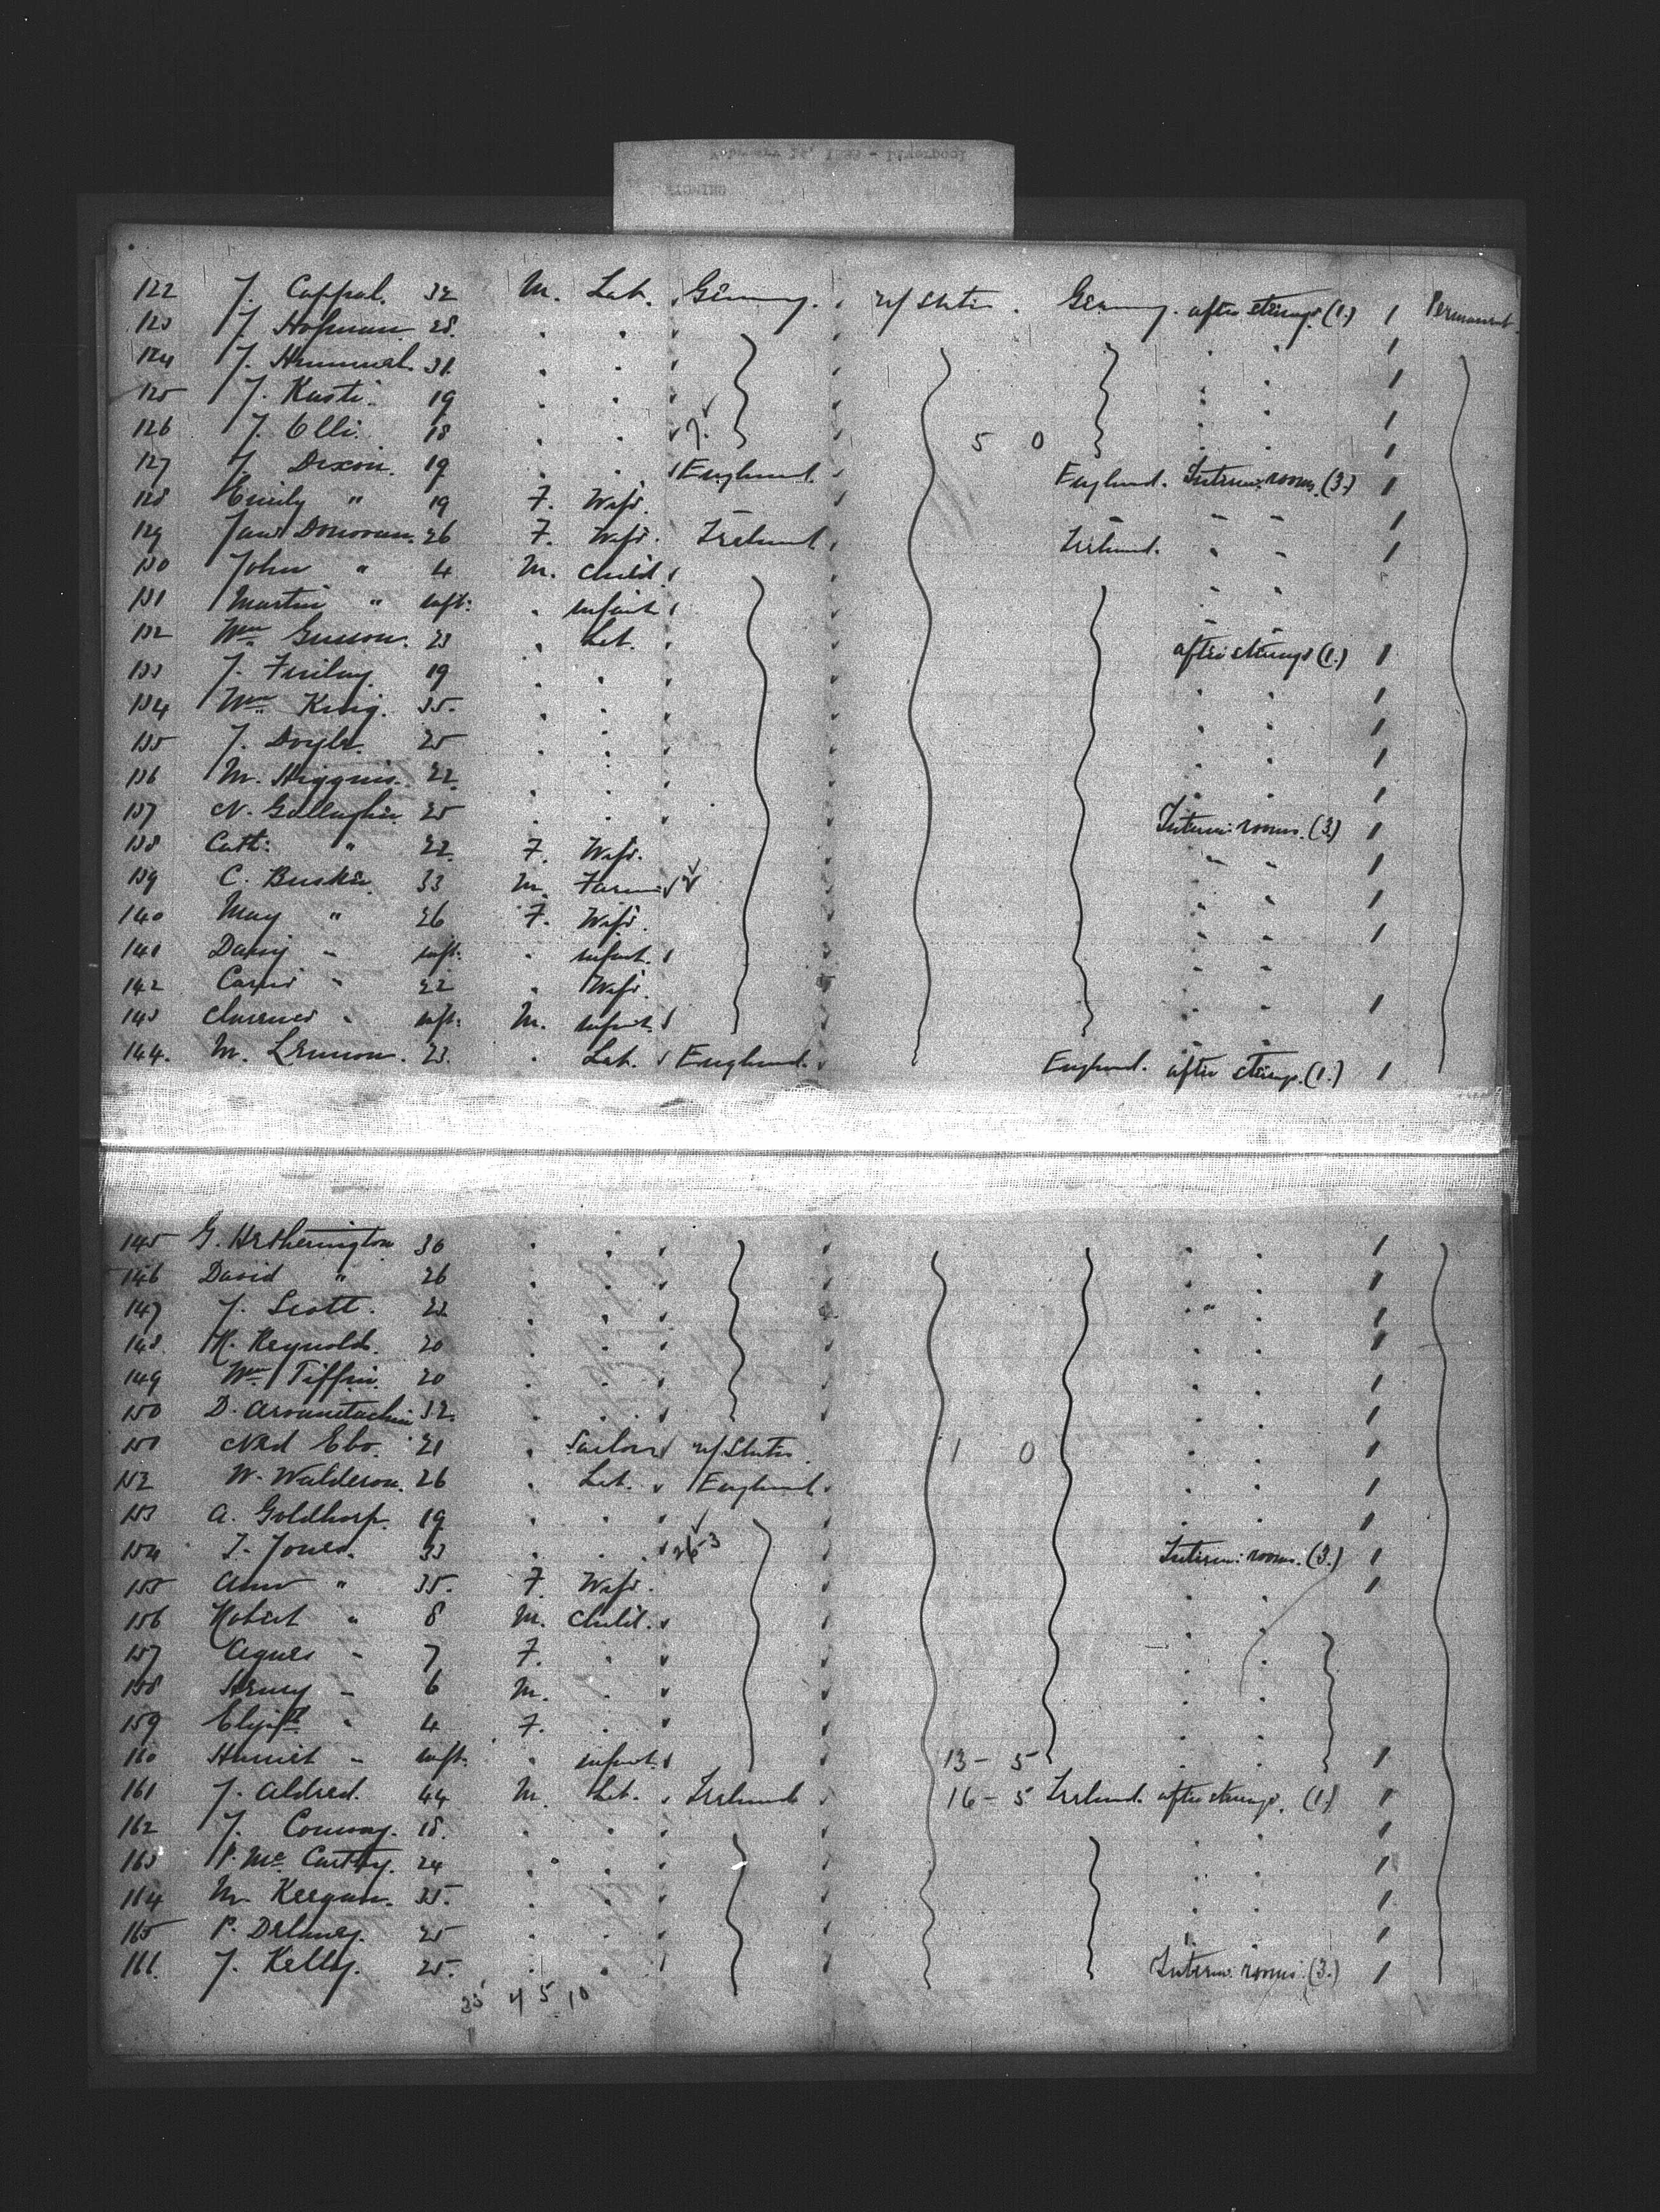 122 J. Cappal. 32 M. Lab. Germny. U/States. Germy. after steerage (1.) 1 Permanent.
123 J. Hofman 28. " " 1
124 J. Hummel. 31. " " 1
125 J. Kusti. 19 " " 1
126 J. Olli. 18 " " 7. 5 0 1
127 J. Dixon. 19 " " England. England. Interm: rooms. (3.) 1
128 Emily " 19 F. Wife. " " 1
129 Jane Donovan. 26 F. Wife. Ireland. Ireland. " " 1
130 John " 4 M. Child
131 Martin " inft: " infant
132 Wm Gunson. 23 " Lab. after steerage (1.) 1
133 J. Finlay. 19 " " 1
134 Wm King. 35. " " 1
135 J. Doyle. 25 " " 1
136 M. Higgins. 22. " " 1
137 N. Gallagher 25 " " Interm: rooms. (3.) 1
138 Cath: " 22. F. Wife. " " 1
139 C. Buskie 33 M. Farmer " " 1
140 May " 26 F. Wife. " " 1
141 Daisy " inft: " infant.
142 Carrie " 22 " Wife. 1
143 Clarence " inft: M. infant.
144. M. Lennon. 23. " Lab. England. England. after steerage. (1.) 1
145 G. Hetherington 36 " " 1
146 David " 26 " " 1
147 J. Scott. 22 " " 1
148. R. Reynolds. 20 " " 1
149 Wm Tiffin. 20 " " 1
150 D. 32. " " 1
151 Ned Ebo. 21 " Sailor U/States. 1 0 1
152 W. Walderson. 26 " Lab. England. 1
153 A. Goldthorp. 19 " " 1
154 T. Jones. 33 " " Interm: rooms. (3.) 1
155 Ann " 35. F. Wife. 1
156 Robert " 8 M. Child.
157 Agnes " 7 F. "
158 Henry " 6 M. "
159 Elizth " 4 F. "
160 Harriet " inft. " infant. 13 - 5 1
161 J. Aldred. 44 M. Lab. Ireland 16 - 5 Ireland. after steerage. (1.) 1
162 J. Conway. 18. " " 1
163 P. Mc Carthy. 24 " " 1
164 M. Keegan. 35. " " 1
165 P. Delaney. 25 " " 1
166. J. Kelly. 25. " " Interm: rooms. (3.) 1
4 5 10